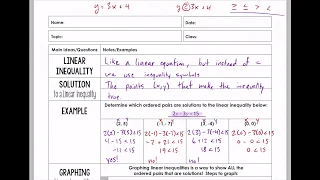 y = 3x + 4
y ≥ 3x + 4
≥ ≤ > <
Name:
Date:
Topic:
Class:
Main Ideas/Questions
Notes/Examples
LINEAR INEQUALITY
Like a linear equation, but instead of =
we use inequality symbols
SOLUTION
to a Linear Inequality
The points (x,y) that make the inequality
true.
EXAMPLE
Determine which ordered pairs are solutions to the linear inequality below:
2x - 3y < 15
2(2) - 3(5) < 15
2(-1) - 3(-7) < 15
2(3) - 3(-4) < 15
2(0) - 3(0) < 15
4 - 15 < 15
-2 + 21 < 15
6 + 12 < 15
0 - 0 < 15
-11 < 15
19 < 15
18 < 15
0 < 15
yes!
no!
no!
Graphing linear inequalities is a way to show ALL the
ordered pairs that are solutions! Steps to graph: